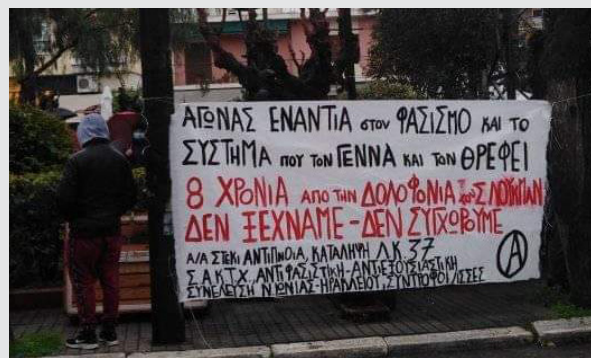 ΑΓΩΝΑΣ ΕΝΑΝΤΙΑ στον ΦΑΣΙΣΜΟ ΚΑΙ ΤΟ
ΣΥΣΤΗΜΑ ΠΟΥ ΤΟΝ ΓΕΝΝΑ ΚΑΙ ΤΟΝ ΘΡΕΦΕΙ
8 ΧΡΟΝΙΑ ΑΠΟ ΤΗΝ ΔΟΛΟΦΟΝΙΑ ΤΟΥ Σ. ΛΟΥΚΜΑΝ
ΔΕΝ ΞΕΧΝΑΜΕ - ΔΕΝ ΣΥΓΧΩΡΟΥΜΕ
Α/Α ΣΤΕΚΙ ΑΝΤΙΠΝΟΙΑ, ΚΑΤΑΛΗΨΗ Λ.Κ 37
Σ.Α.Κ.Τ.Χ., ΑΝΤΙΦΑΣΙΣΤΙΚΗ-ΑΝΤΙΕΞΟΥΣΙΑΣΤΙΚΗ
ΣΥΝΕΛΕΥΣΗ Ν.ΙΩΝΙΑΣ-ΗΡΑΚΛΕΙΟΥ, ΣΥΝΤΡΟΦΟΙ/ΙΣΣΕΣ